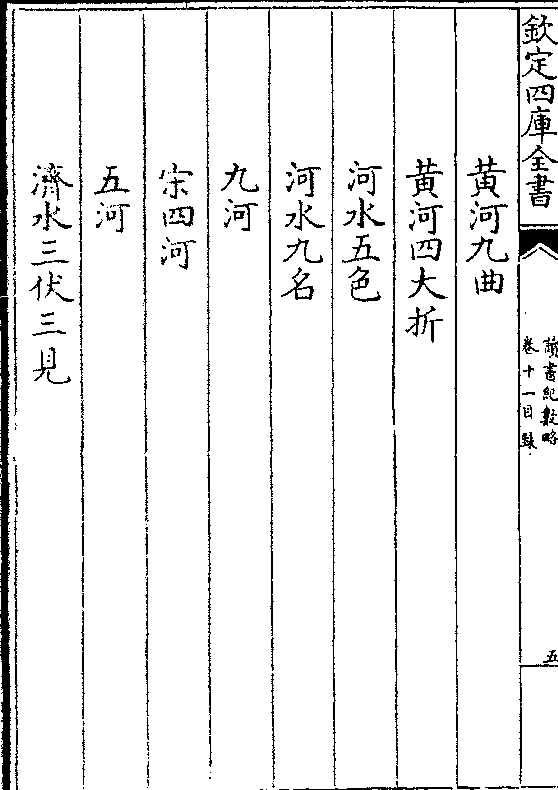 欽定四庫全書
讀書紀數略
卷十一目録
五
黃河九曲
黃河四大折
河水五色
河水九名
九河
宋四河
五河
濟水三伏三見